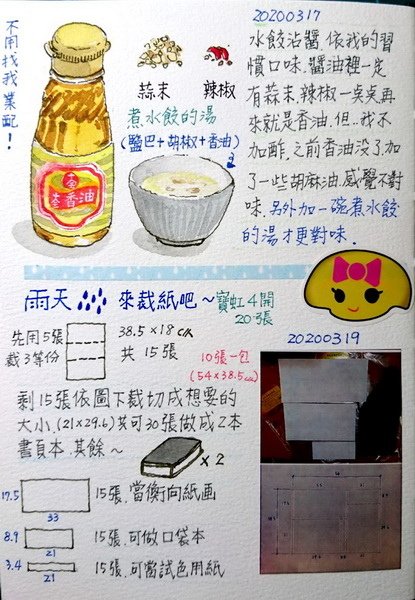 不用找我業配！
蒜末
辣椒
煮水餃的湯
(鹽巴+胡椒+香油)
香油
20200317
水餃沾醬.依我的習
慣口味.醬油裡一定
有蒜末.辣椒一點點.再
來就是香油.但..我不
加醋.之前香油沒了加
了一些胡麻油.感覺不對
味.另外加一碗煮水餃
的湯才更對味.
雨天
來裁紙吧～寶虹4開
20張
先用5張
裁3等份
38.5×18cm
共 15張
10張一包
(54×38.5cm)
20200319
剩15張依圖下裁切成想要的
大小.(21×29.6)共可30張做成2本
書頁本.其餘～
×2
17.5
33
15張.當橫向紙画
8.9
21
15張.可做口袋本
3.4
21
15張.可當試色用紙